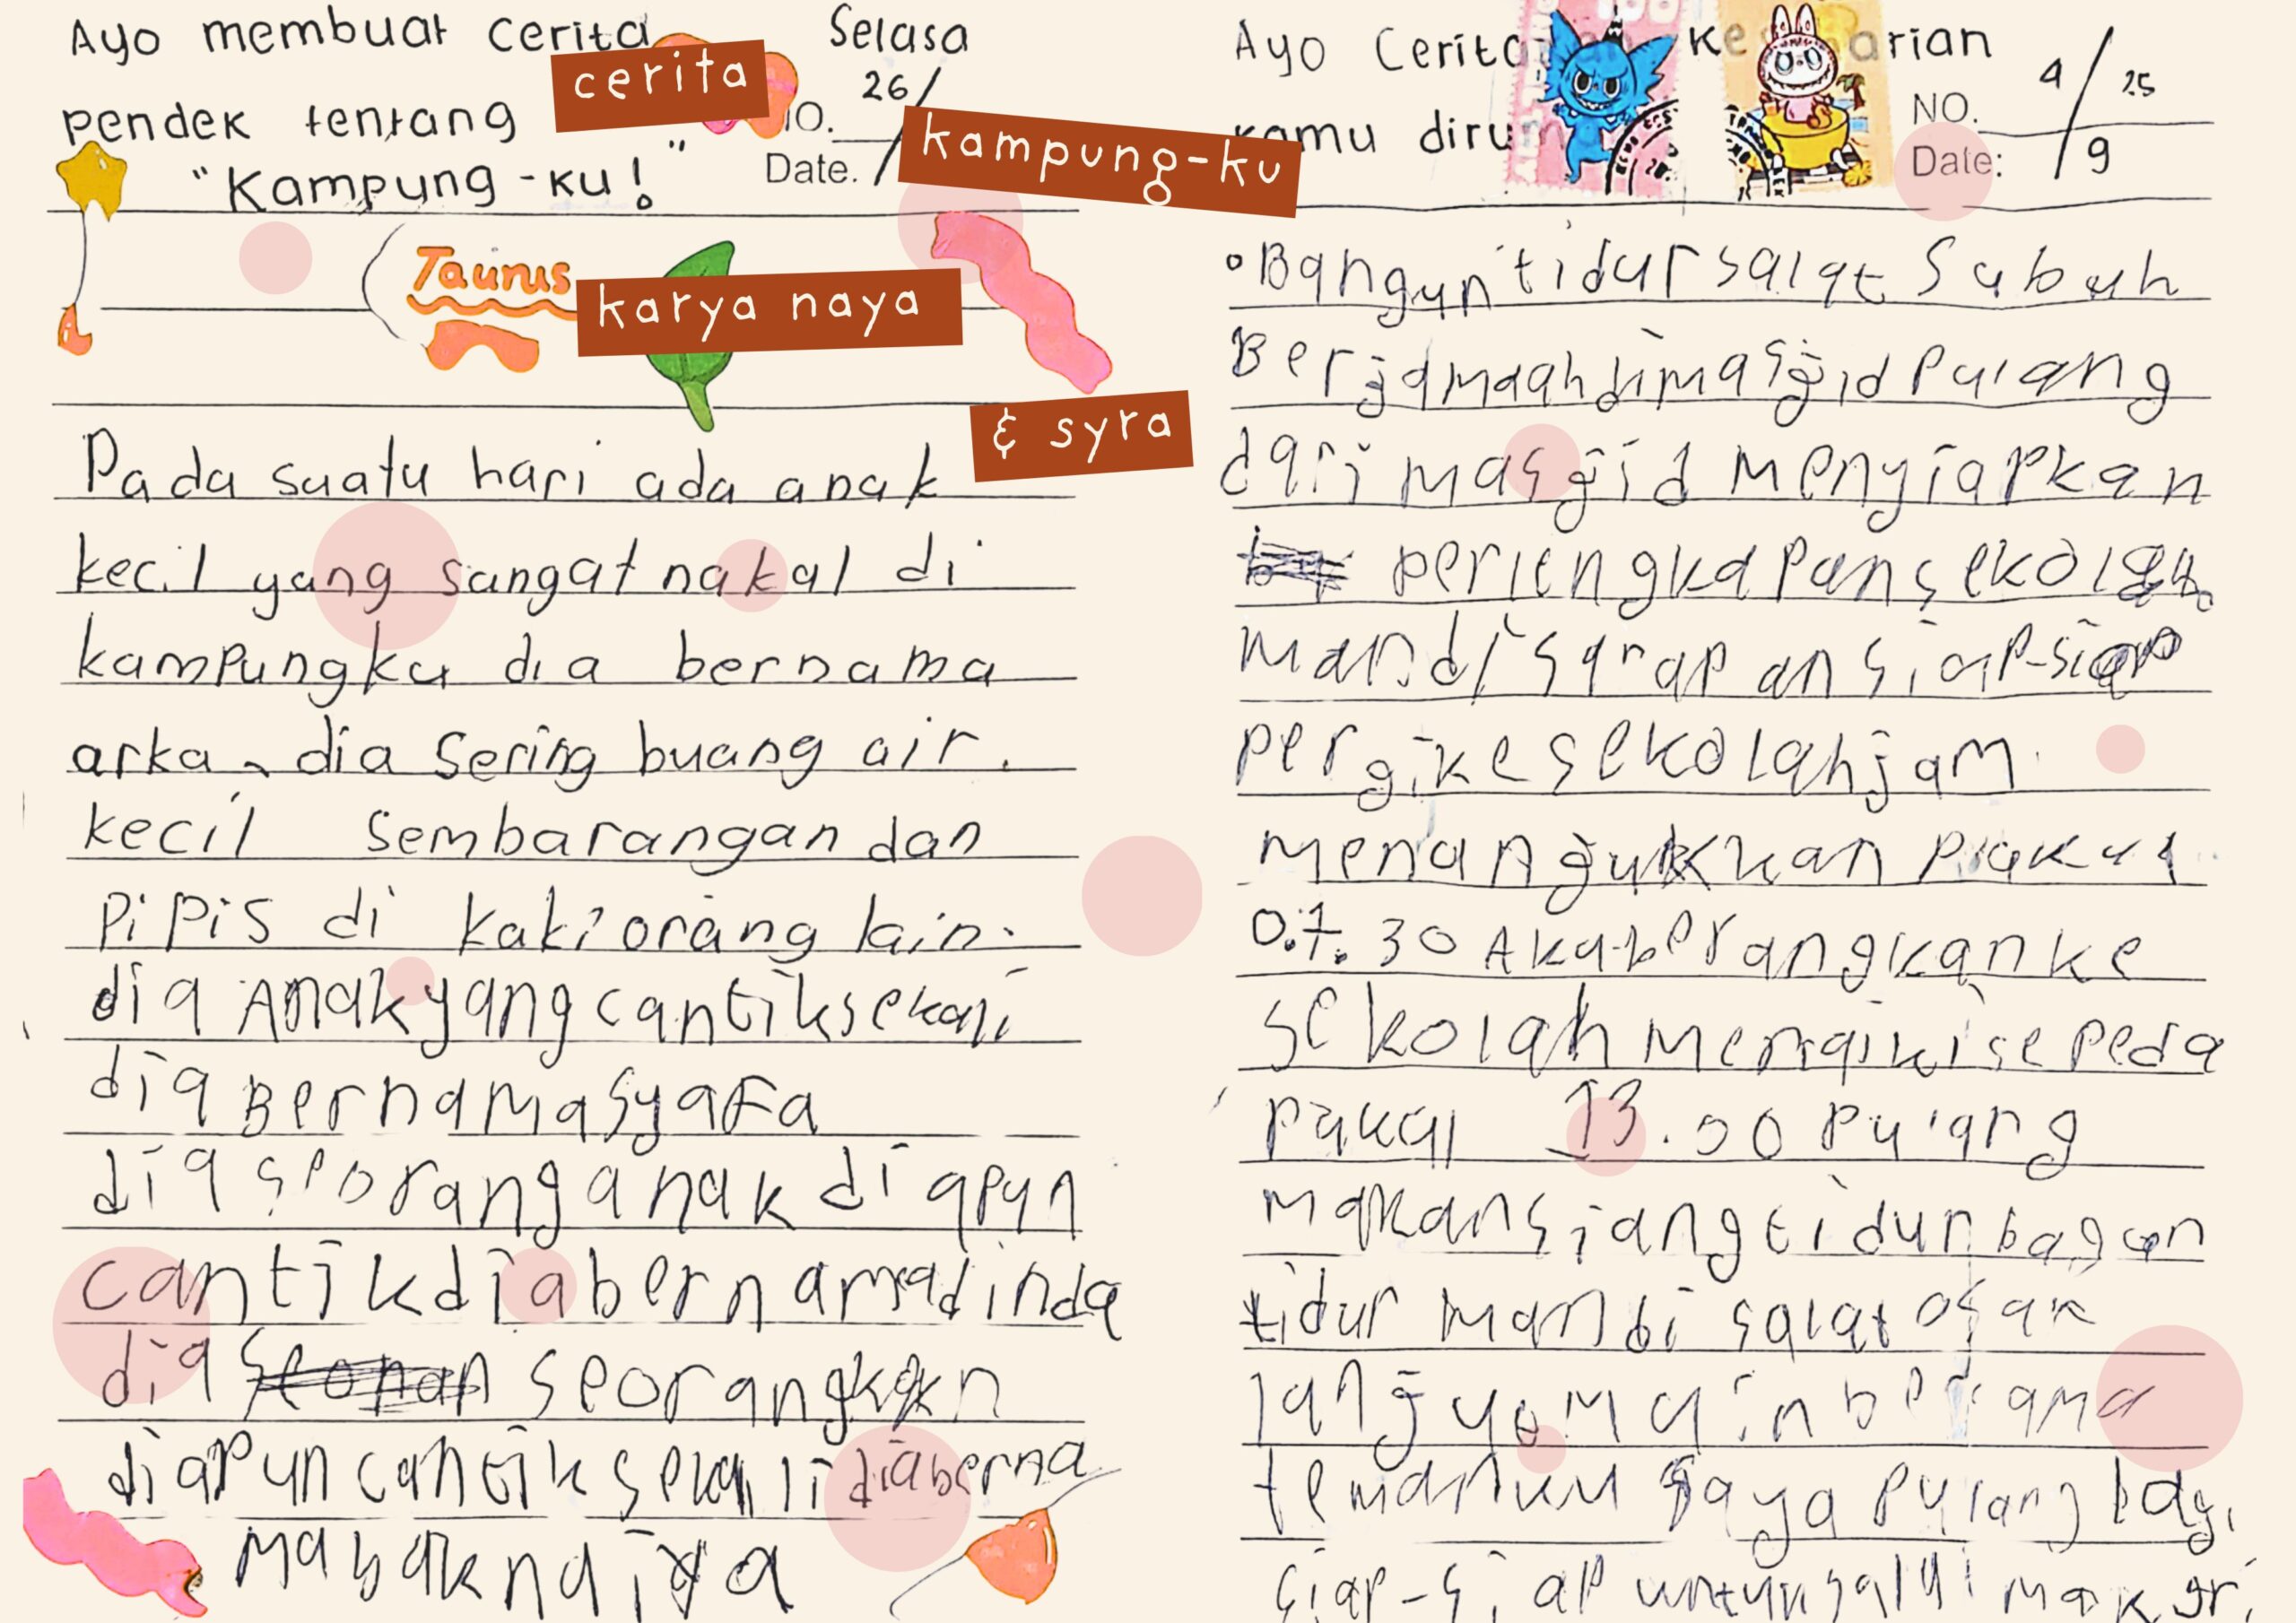 Ayo membuat cerita
pendek tentang
"Kampung-ku!"
Selasa
26/
NO.
Date.
cerita
kampung-ku
Taurus
karya naya
& syra
Pada suatu hari ada anak
kecil yang sangat nakal di
kampungku dia bernama
arka, dia sering buang air.
kecil sembarangan dan
Pipis di kaki orang lain.
dia Anak yang cantik sekali
dia Bernama syaFa
dia seorang anak dia pun
cantik dia bernama dinda
dia seorang
dia Pun cantik sekali dia berna
Ma
Ayo arian
kamu
NO. 4/25
Date: 9
Bangun tidur salat Subuh
Berjamaah dimasjid Pulang
dari masjid Menyiapkan
perlengkapan sekolah
Mandi sarapan siap-siap
pergi ke sekolah jam.
07.30 Aku berangkan ke
sekolah sepeda
13.00 Pulang
Makan siang tidur
tidur salat
main bersama
saya Pulang
siap-siap